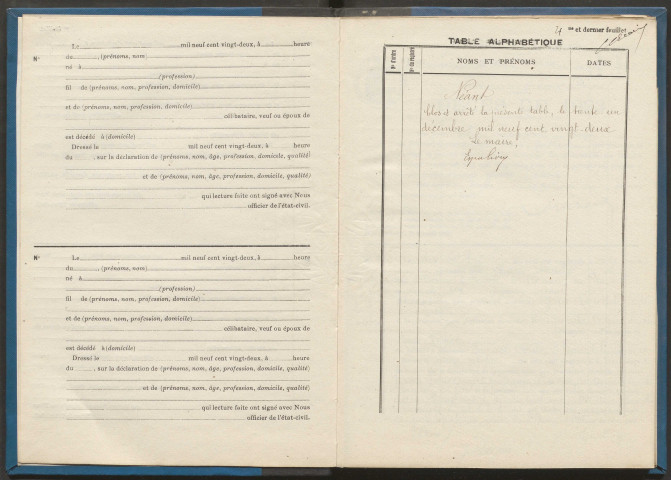 Le mil neuf cent vingt-deux, à heure
Nº du , (prénoms, nom)
né à
(profession)
fil de (prénoms, nom, profession, domicile)
et de (prénoms, nom, profession, domicile)
célibataire, veuf ou époux de
est décédé à (domicile)
Dressé le mil neuf cent vingt-deux, à heure
du , sur la déclaration de (prénoms, nom, âge, profession, domicile, qualité)
et de (prénoms, nom, âge, profession, domicile, qualité)
qui lecture faite ont signé avec Nous
officier de l'état-civil.
Nº Le mil neuf cent vingt-deux, à heure
du , (prénoms, nom)
né à
(profession)
fil de (prénoms, nom, profession, domicile)
et de (prénoms, nom, profession, domicile)
célibataire, veuf ou époux de
est décédé à (domicile)
Dressé le mil neuf cent vingt-deux, à heure
du , sur la déclaration de (prénoms, nom, âge, profession, domicile, qualité)
et de (prénoms, nom, âge, profession, domicile, qualité)
qui lecture faite ont signé avec Nous
officier de l'état-civil.
4 me et dernier feuillet
TABLE ALPHABÉTIQUE
NOMS ET PRÉNOMS
DATES
Néant
Clos et arrêté la présente table, le trente un
décembre mil neuf cent vingt deux
Le maire,